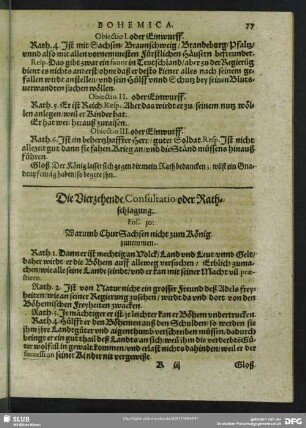 BOHEMICA. 77
Obiectio I. oder Einwurff.
Rath. 4. Ist mit Sachsen/ Braunschweig/ Brandeburg/ Pfaltz/
vnnd also mit allen vornemmesten Fürstlichen Häusern befreundet.
Resp. Das gibt zwar ein favor in Teutschland/ aber zu der Regierūg
dient es nichts
fallen würde anstellen/ vnd sein Hülff vnnd Schutz bey seinen Bluts-
verwandten suchen wöllen.
Obiectio II. oder Einwurff.
Rath. 5. Er ist Reich. Resp. Aber das wirdt er zu seinem nutz wöl-
len anlegen/ weil er Kinder hat.
Er hat wenig herauß zuraisen.
Obiectio III. oder Einwurff.
Rath. 6. Ist ein behertzhaffter Herr/ guter Soldat. Resp. Ist nicht
allezeit gut/ dann sie fahen Krieg an/ vnd die Ständ müssens hinauß
führen.
Gloß. Der König lasset sich gegen dir mein Rath bedancken/
so beger ihn.
Die Vierzehende Consultatio oder Rath-
schlagung.
Fol. 30.
Warumb Chur Sachsen nicht zum König
zunemen.
Rath. 1. Dann er ist mechtig an Volck/ Land vnd Leut/ vnnd Gelt/
daher wirdt er die Böhmen auff allweg versuchen/ Erblich zuma-
chen/ wie alle seine Lande seindt/ vnd er kan mit seiner Macht vil præ-
stiern.
Rath. 2. Ist von Natur nicht ein grosser Freund deß Adels frey-
heiten/ wie an seiner Regierung zusehen/ würdt da vnd dort von den
Böhemischen Freyheiten zwacken.
Rath. 3. Je mächtiger er ist/ je leichter kan er Böhem vndertrucken.
Rath. 4. Hülfft er den Böhemen auß den Schulden/ so werden sie
ihm jhre Landgüter vnd aigenthumb verschreiben müssen/ dadurch
bringt er ein gut theil deß Lands an sich/ weil ihm die verderbte Gü-
ter wolfail in gewalt kommen/ vnd erlaßt nichts dahinden/ weil er der
Succession seiner Kinder nit vergewißt.
K iij Gloß.